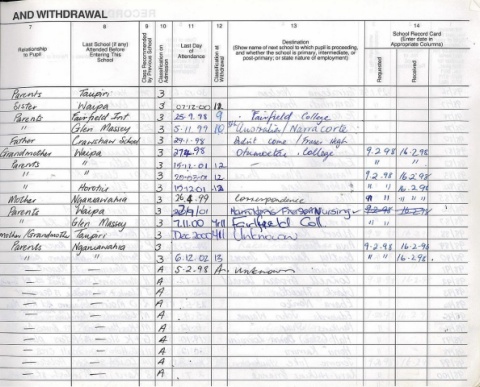 AND WITHDRAWAL
7 8 9 10 11 12 13 14
Relationship to Pupil
Last School (if any) Attended Before Entering This School
Class Recommended by Previous School
Classification on Admission
Last Day of Attendance
Classification at Withdrawal
Destination
(Show name of next school to which pupil is proceeding, and whether the school is primary, intermediate, or post-primary; or state nature of employment)
School Record Card
(Enter date in Appropriate Columns)
Requested
Received
Parents Taupiri 3
Sister Waipa 3 07.12.00 12
Parents Fairfield Int 3 25.9.98 9 Fairfield College
" Glen Massey 3 5.11.99 10 Australian / Narracorte
Father Cranshaw School 3 29.1.98 Didnt come / Fraser High
Grandmother Waipa 3 27.4.98 College 9.2.98 16.2.98
Parents " 3 15.12.01 12 — " "
" " 3 12 9.2.98 16.2.98
" Horotiu 3 15.12.01 12 " " 16.2.98
Mother Ngaruawahia 3 26.4.99 Correspondence " " " "
Parents Waipa 3 Nursing 9.2.98 16.2.98
" Glen Massey 3 7.11.00 Fairfield Coll.
Mother/Grandmoth Taupiri 3 Dec 2000 Unknown
Parents Ngaruawahia 3 9.2.98 16.2.98
" " 3 6.12.02 13 " " 16.2.98
— — A 5.2.98 A Unknown
— — A
— — A
— — A
— — A
— — A
— — A
— — A
— — A